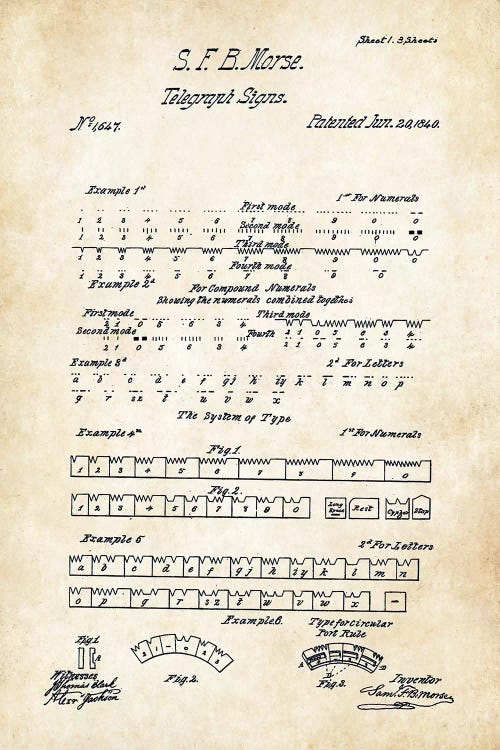 Sheet 1. 3 Sheets
S. F. B. Morse.
Telegraph Signs.
No. 1,647.
Patented Jun. 20, 1840.
Example 1st
1st For Numerals
First mode
1 2 3 4 5 6 7 8 9 0
Second mode
1 2 3 4 5 6 7 8 9 0
Third mode
1 2 3 4 5 6 7 8 9 0
Fourth mode
1 2 3 4 5 6 7 8 9 0
Example 2d
For Compound Numerals
Showing the numerals combined together
First mode
Third mode
Second mode
Fourth
Example 3d
2d For Letters
a b c d e f gj h iy k l m n o p
q r sz t u v w x
The System of Type
Example 4th
1st For Numerals
Fig. 1.
1 2 3 4 5 6 7 8 9 0
Fig. 2.
1 2 3 4 5 6 7 8 9 0 Long Space Rest Cypher Stop
Example 5
2d For Letters
a b c d e f gj h iy k l m n
o p q r sz t u v w x
Example 6.
Type for circular
Port Rule
Fig. 1
A
2 1 - 0 2
Fig. 2.
A B D
Fig. 3.
Witnesses
Thomas Clark
Alexr Jackson
Inventor
Saml. F. B. Morse